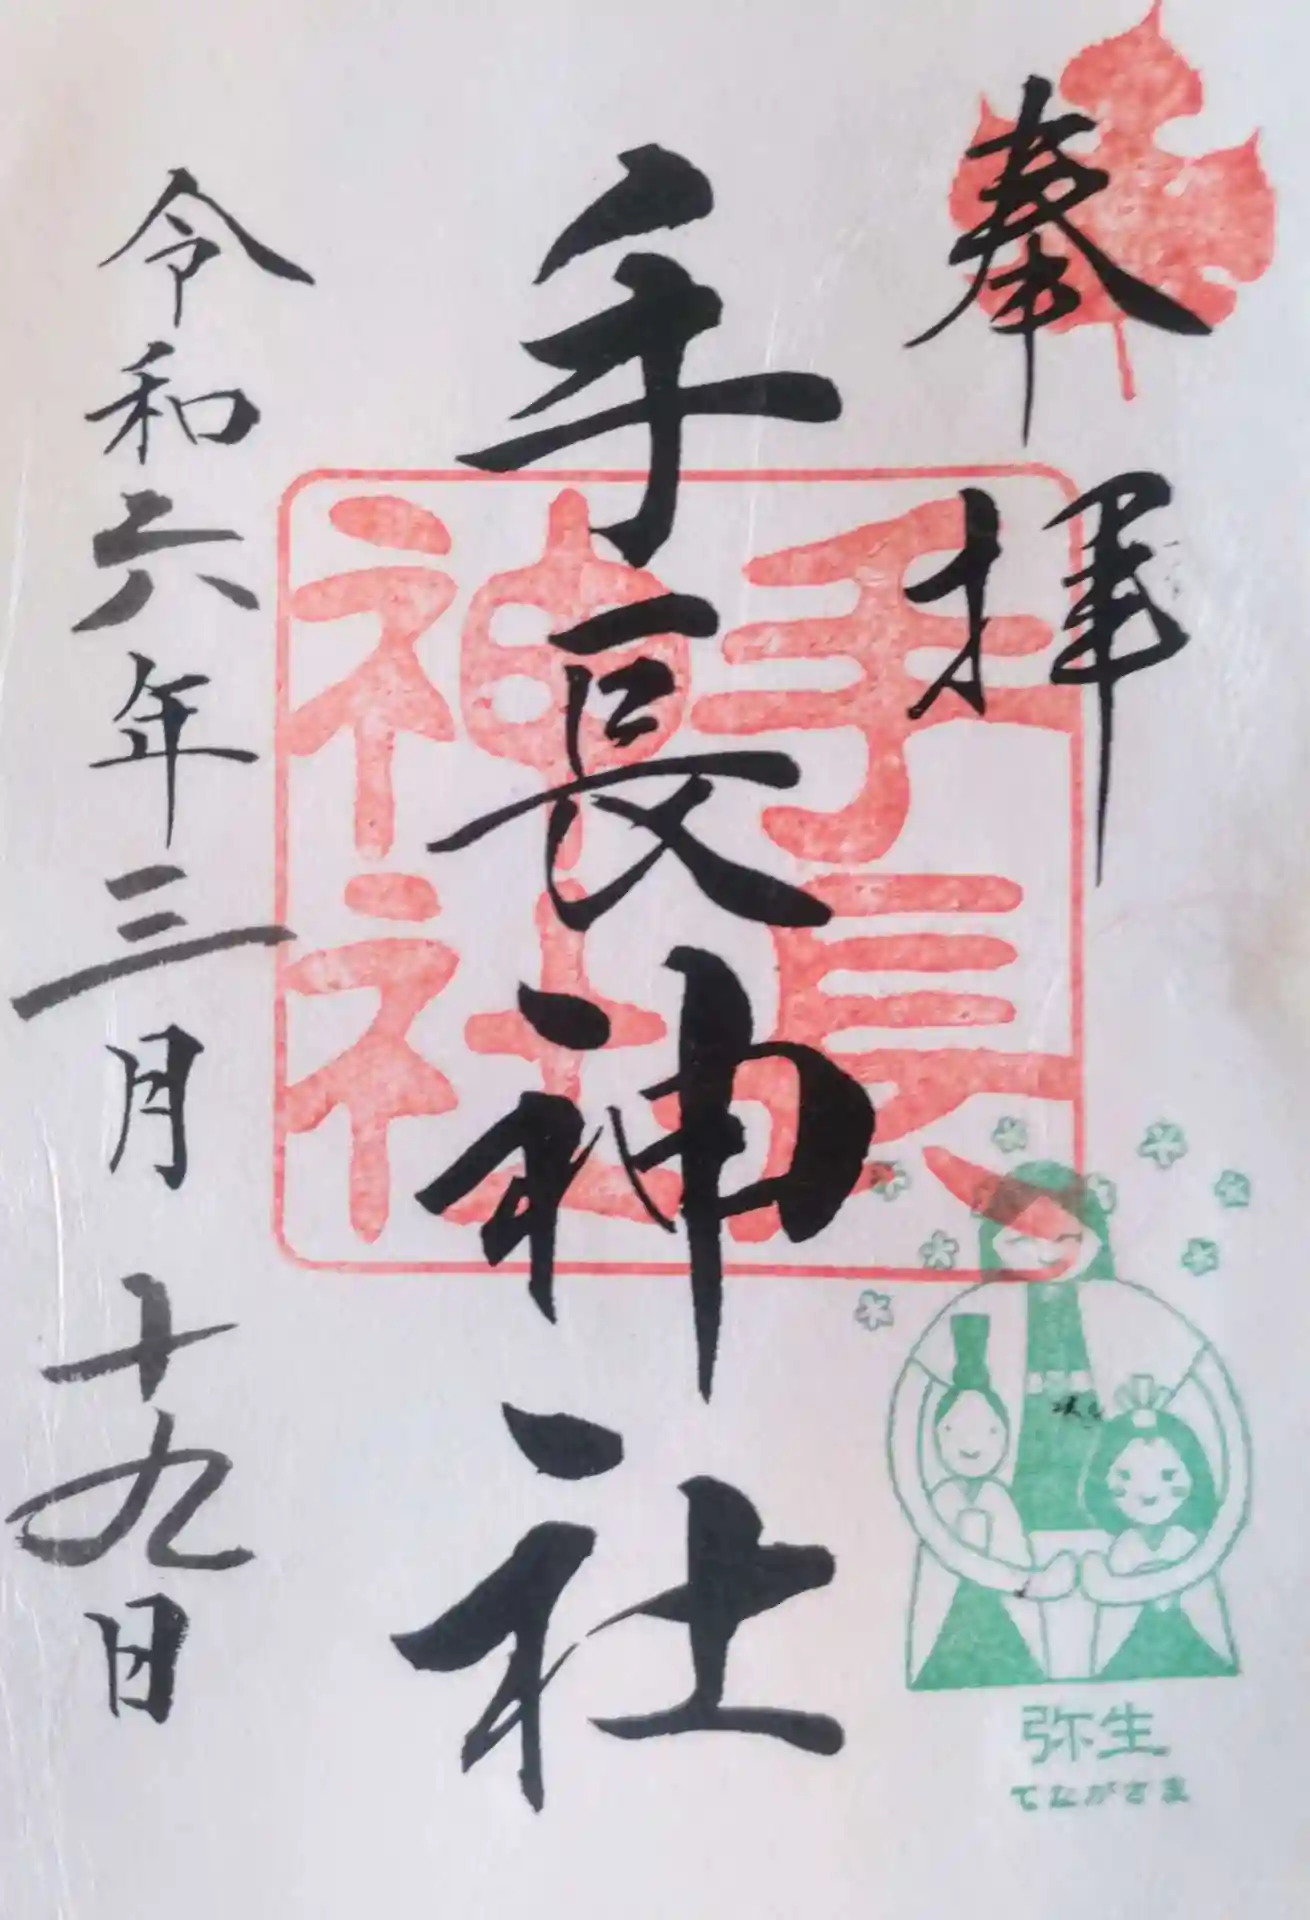 奉拝
手長神社
手長
神社
令和六年三月十九日
弥生
てながさま